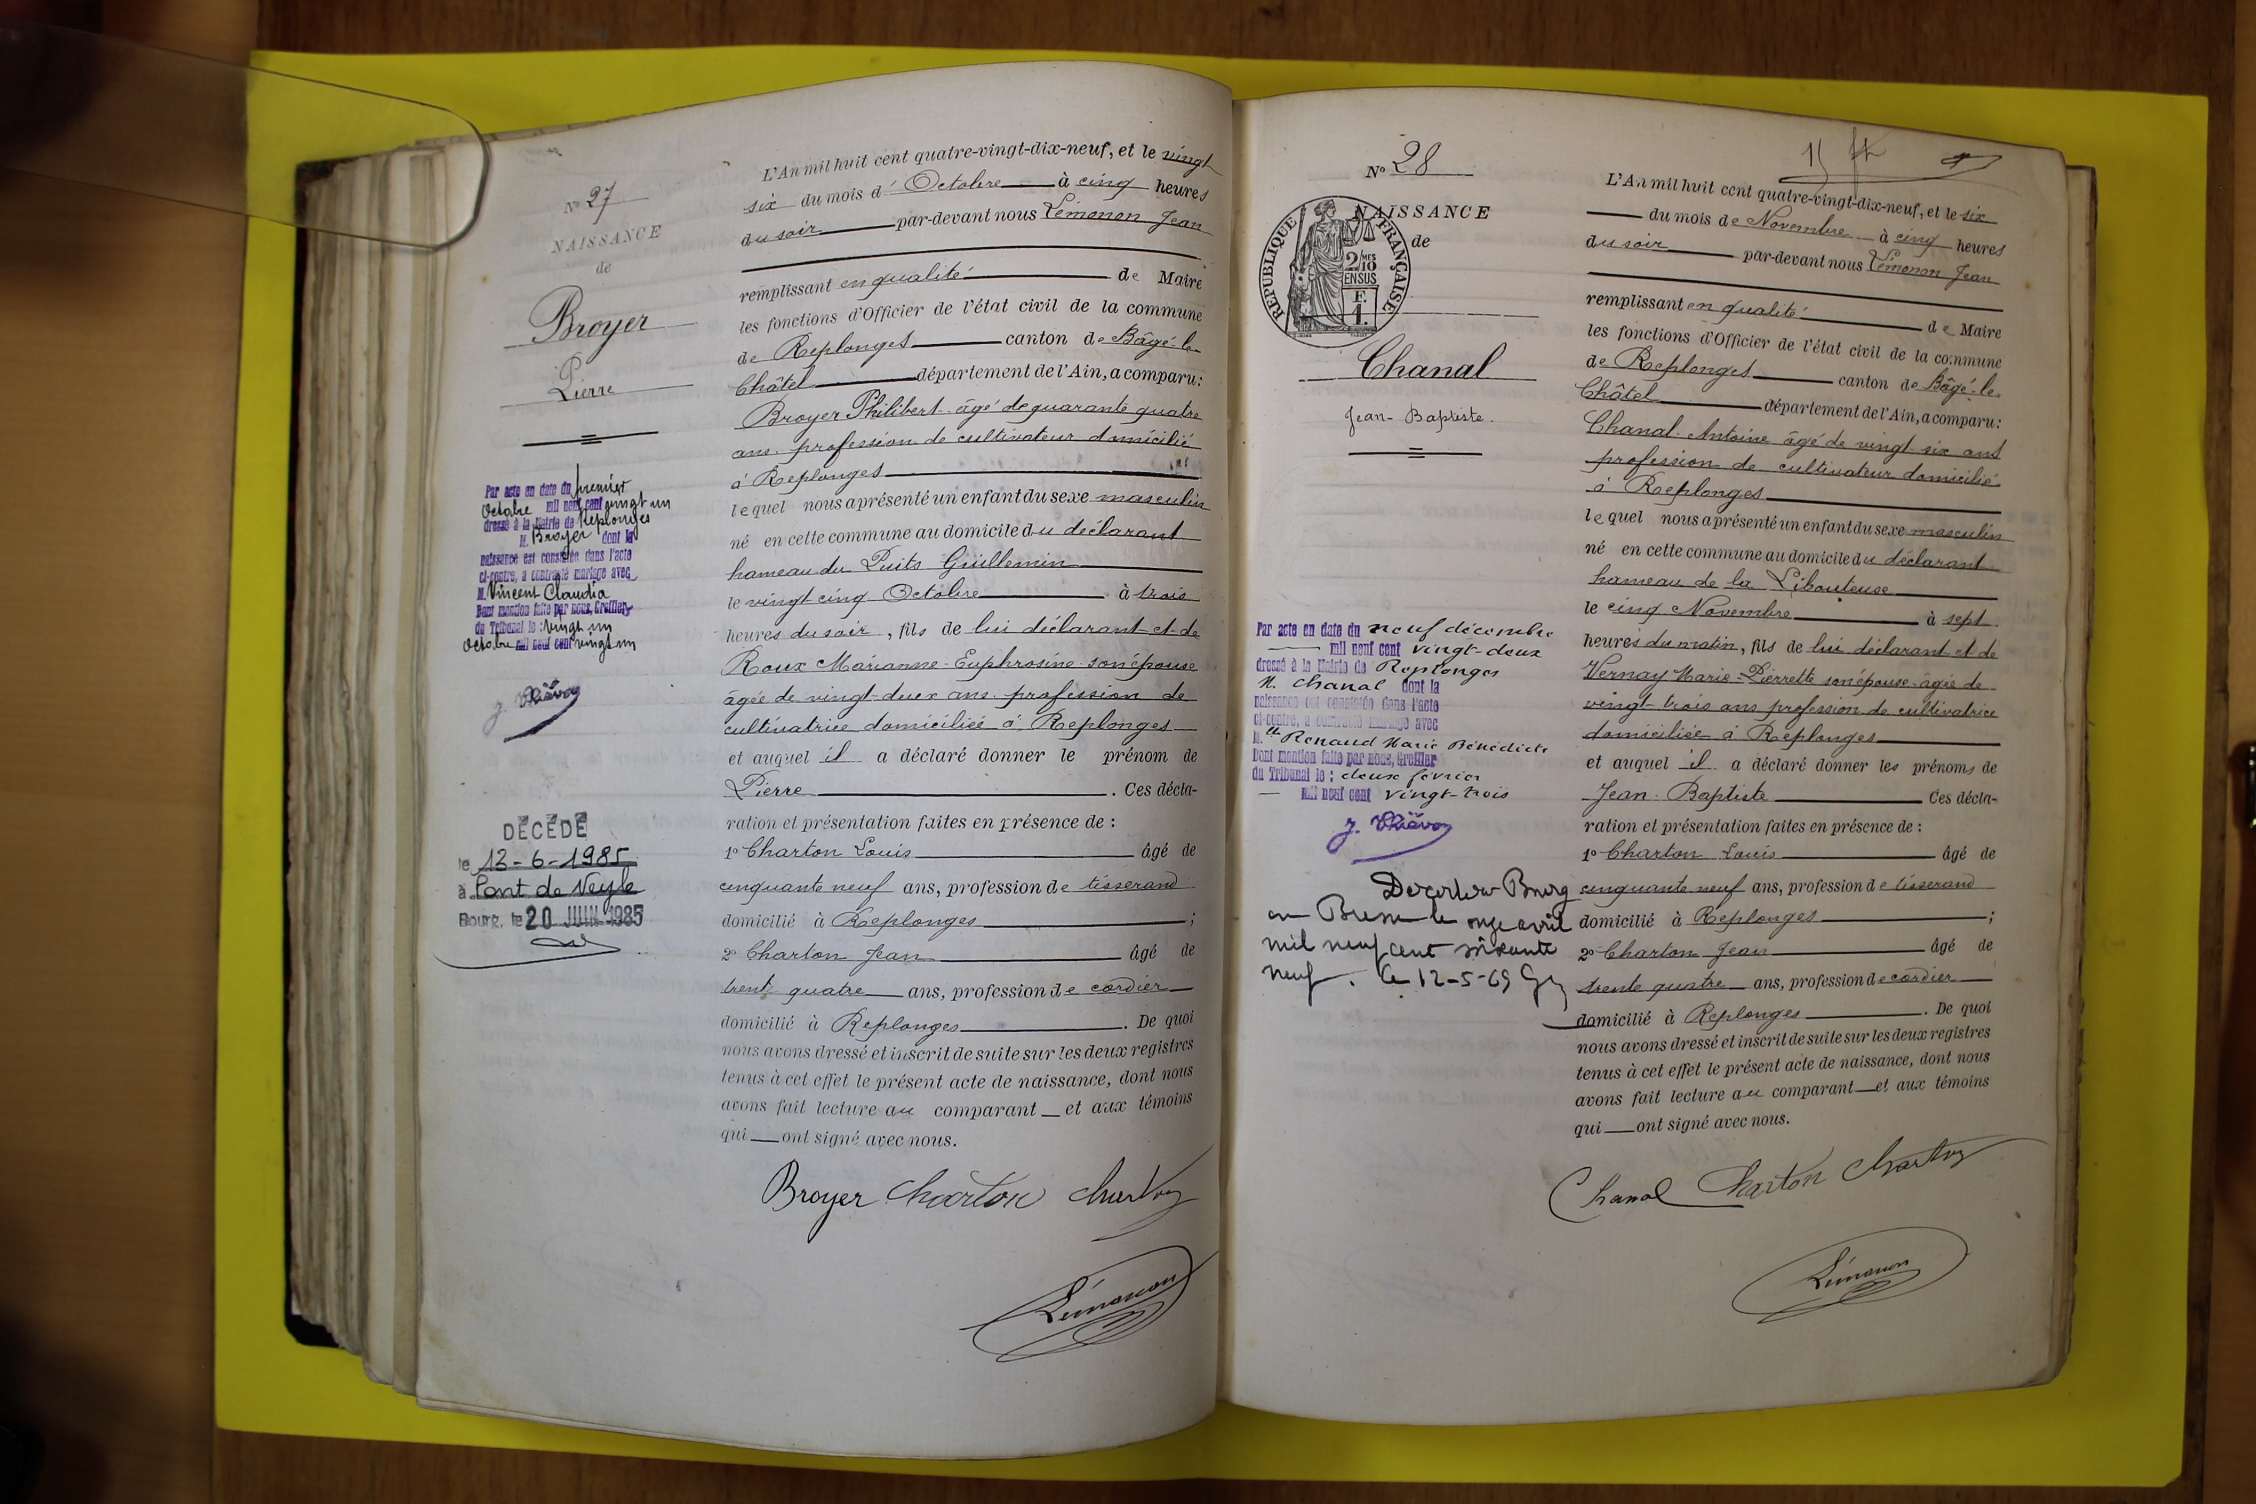 N° 27
NAISSANCE
de
Broyer
Pierre
Par acte en date du premier
Octobre mil neuf cent vingt un
dressé à la Mairie de Replonges
M. Broyer dont la
naissance est constatée dans l'acte
ci-contre, a contracté mariage avec
M. Vincent Claudia
Dont mention faite par nous, Greffier
du Tribunal le : vingt un
Octobre mil neuf cent vingt un
DÉCÉDÉ
le 12-6-1985
à Pont de Veyle
Bourg, le 20 JUIN 1985
L'An mil huit cent quatre-vingt-dix-neuf, et le vingt
six du mois d' Octobre à cinq heures
du soir par-devant nous Lémonon Jean
remplissant en qualité de Maire
les fonctions d'Officier de l'état civil de la commune
de Replonges canton de Bâgé-le-
Châtel département de l'Ain, a comparu :
Broyer Philibert âgé de quarante quatre
ans profession de cultivateur domicilié
à Replonges
lequel nous a présenté un enfant du sexe masculin
né en cette commune au domicile du déclarant
hameau du Puits Guillemin
le vingt cinq Octobre à trois
heures du soir, fils de lui déclarant et de
Roux Marianne-Euphrosine son épouse
âgée de vingt-deux ans profession de
cultivatrice domiciliée à Replonges
et auquel il a déclaré donner le prénom de
Pierre . Ces décla-
ration et présentation faites en présence de :
1° Charton Louis âgé de
cinquante neuf ans, profession de tisserand
domicilié à Replonges ;
2° Charton Jean âgé de
trent quatre ans, profession de cordier
domicilié à Replonges . De quoi
nous avons dressé et inscrit de suite sur les deux registres
tenus à cet effet le présent acte de naissance, dont nous
avons fait lecture au comparant et aux témoins
qui ont signé avec nous.
Broyer Charton Charton
Lémonon
N° 28
NAISSANCE
de
RÉPUBLIQUE FRANÇAISE
2/10 MES
EN SUS
F.
1.
Chanal
Jean-Baptiste.
Par acte en date du neuf décembre
mil neuf cent vingt-deux
dressé à la Mairie de Replonges
M. Chanal dont la
naissance est constatée dans l'acte
ci-contre, a contracté mariage avec
M. lle Renaud Marie Bénédicte
Dont mention faite par nous, Greffier
du Tribunal le : deux février
mil neuf cent vingt-trois
Bourg
en Bresse le onze avril
mil neuf cent soixante
neuf. Le 12-5-69
L'An mil huit cent quatre-vingt-dix-neuf, et le six
du mois de Novembre à cinq heures
du soir par-devant nous Lémonon Jean
remplissant en qualité de Maire
les fonctions d'Officier de l'état civil de la commune
de Replonges canton de Bâgé-le-
Châtel département de l'Ain, a comparu :
Chanal Antoine âgé de vingt six ans
profession de cultivateur domicilié
à Replonges
lequel nous a présenté un enfant du sexe masculin
né en cette commune au domicile du déclarant
hameau de la
le cinq Novembre à sept
heures du matin, fils de lui déclarant et de
Vernay Marie-Pierrette son épouse âgée de
vingt trois ans profession de cultivatrice
domiciliée à Replonges
et auquel il a déclaré donner les prénoms de
Jean-Baptiste Ces décla-
ration et présentation faites en présence de :
1° Charton Louis âgé de
cinquante neuf ans, profession de tisserand
domicilié à Replonges ;
2° Charton Jean âgé de
trente quatre ans, profession de cordier
domicilié à Replonges . De quoi
nous avons dressé et inscrit de suite sur les deux registres
tenus à cet effet le présent acte de naissance, dont nous
avons fait lecture au comparant et aux témoins
qui ont signé avec nous.
Chanal Charton Charton
Lémonon